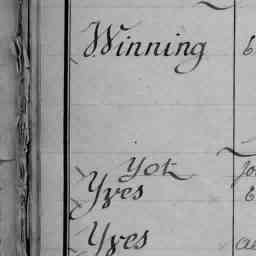 Winning 6
Yot
Yves 6
Yves